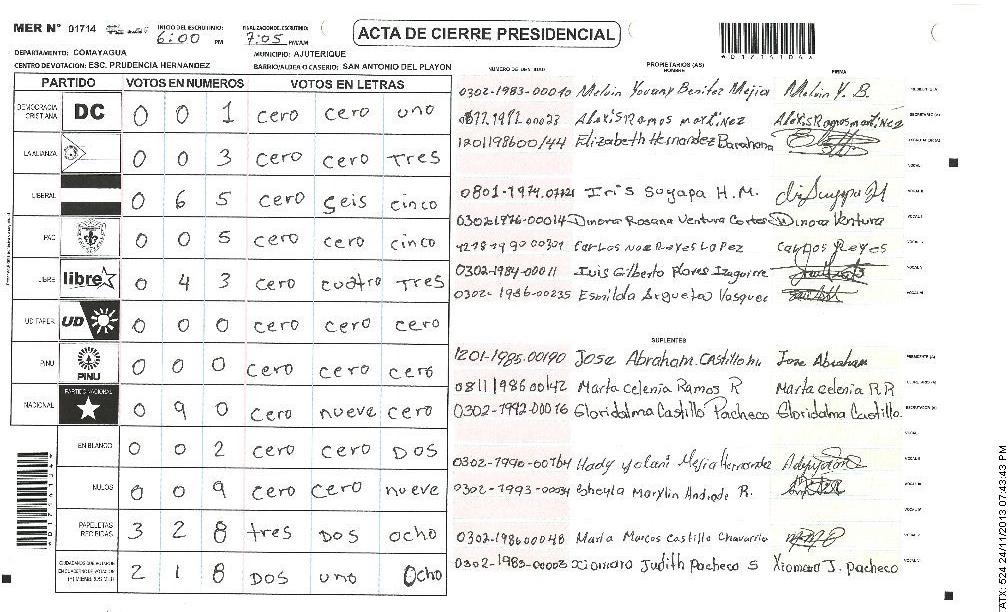 MER N° 01714 INICIO DEL ESCRUTINIO: 6:00 PM FINALIZACION DE ESCRUTINIO: 7:05 PM/AM
ACTA DE CIERRE PRESIDENCIAL
DEPARTAMENTO: COMAYAGUA MUNICIPIO: AJUTERIQUE
CENTRO DE VOTACION: ESC. PRUDENCIA HERNANDEZ BARRIO/ALDEA O CASERIO: SAN ANTONIO DEL PLAYON
PARTIDO VOTOS EN NUMEROS VOTOS EN LETRAS
DEMOCRACIA CRISTIANA DC 0 0 1 cero cero uno
LA ALIANZA 0 0 3 cero cero Tres
LIBERAL 0 6 5 cero seis cinco
PAC 0 0 5 cero cero cinco
LIBRE libre 0 4 3 cero cuatro Tres
UD FAPER UD 0 0 0 cero cero cero
PINU PINU 0 0 0 cero cero cero
NACIONAL PARTIDO NACIONAL 0 9 0 cero nueve cero
EN BLANCO 0 0 2 cero cero DOS
NULOS 0 0 9 cero cero nueve
PAPELETAS RECIBIDAS 3 2 8 tres DOS ocho
2 1 8 DOS uno Ocho
NUMERO DE IDENTIDAD PROPIETARIOS (AS) NOMBRE FIRMA
Melvin Yovany Benitez Mejia Melvin Y. B.
Alexis Ramos martinez Alexis Ramos martinez
Elizabeth Hernandez Barahona
Iris Suyapa H.M.
Dinora Rosana Ventura Cortes Dinora Ventura
Carlos Noe Reyes Lopez Carlos Reyes
0302-1984-00011 Luis Gilberto Flores Izaguirre
0302-1986-00235 Esmilda Argueta Vasquez
SUPLENTES
1201-1985-00190 Jose Abraham Castillo M. Jose Abraham
0811198600142 Marta Celenia Ramos R Marta celenia R R
0302-1992-00016 Gloridalma Castillo Pacheco Gloridalma Castillo.
0302-1990-00764 Hernandez
0302-1993-00034 Sheyla Marylin Andrade R.
0302-198600048 Maria Marcos Castillo Chavarria
0302-1983-00003 Xiomara Judith Pacheco S Xiomara J. pacheco
TATX: 524 24/11/2013 07:43:43 PM